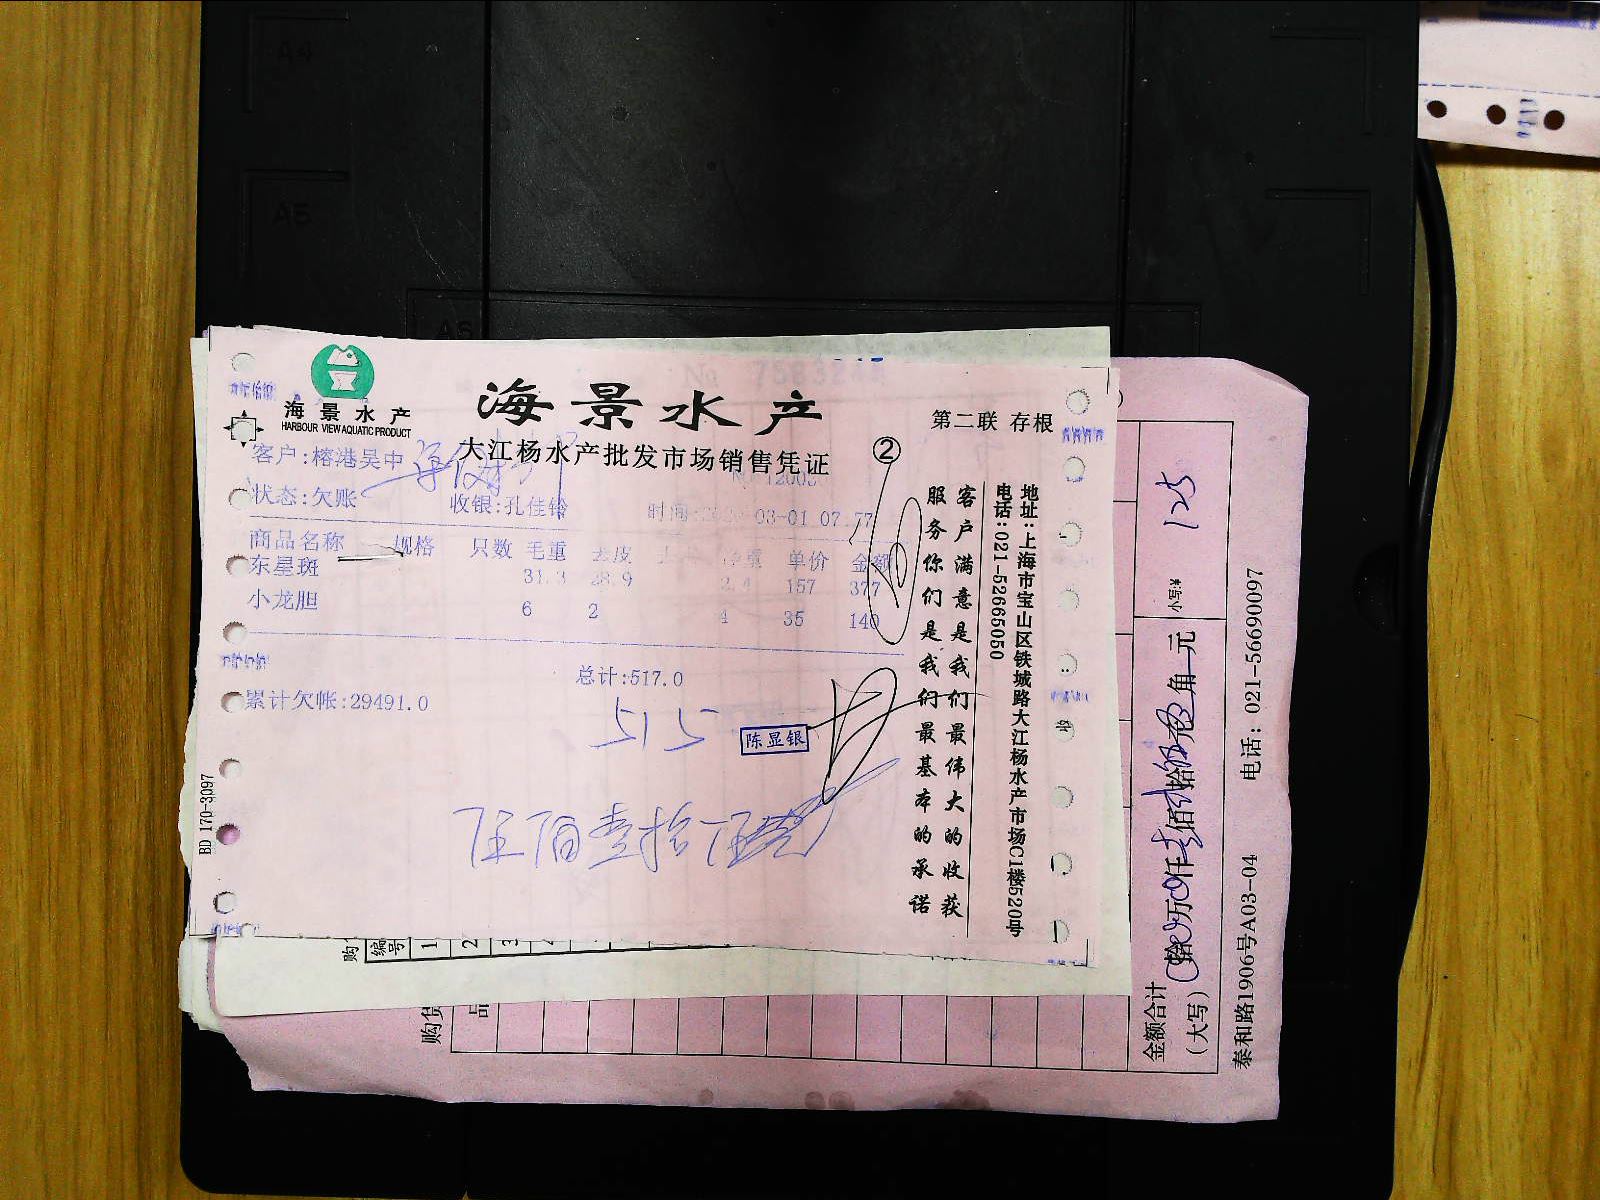 A4
A5
A6
海景水产
HARBOUR VIEW AQUATIC PRODUCT
海景水产
大江杨水产批发市场销售凭证
第二联 存根
②
客户:榕港吴中
状态:欠账
收银:孔佳铃
商品名称 规格 只数 毛重 去皮 单价 金额
东星斑 31.3 28.9 2.4 157 377
小龙胆 6 2 4 35 140
总计:517.0
累计欠帐:29491.0
515
陈显银
伍佰壹拾伍
BD 170-3097
客户满意是我们最伟大的收获
服务你们是我们最基本的承诺
地址:上海市宝山区铁城路大江杨水产市场C1楼520号
电话:021-52665050
购
编号
1
2
3
购货
品
金额合计
(大写)
拾 万 仟 佰 拾 元 角
小写:¥
125
泰和路1906号A03-04
电话: 021-56690097